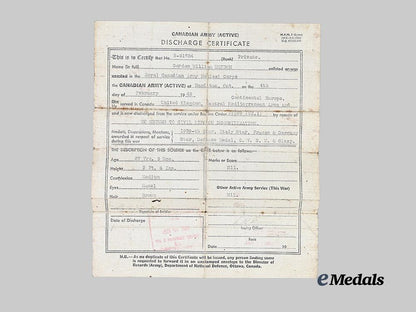 CANADIAN ARMY (ACTIVE)
DISCHARGE CERTIFICATE
This is to Certify that No. (Rank) Private.
Name (in full) Gordon William
enlisted or was
enlisted in the Royal Canadian Army Medical Corps
CANADIAN ARMY (ACTIVE) at Hamilton, Ont. on the 4th
day of February 19
He served in Canada United Kingdom, Central Mediterranean Area and Continental Europe.
and is now discharged from the service under
TO RETURN TO CIVIL LIFE
Medals, Decorations, Mentions, 1939-45 Star, Italy Star, France & Germany
awarded in respect of service Star, Defence Medal, C.V.S.M. & Clasp.
during this war
THE DESCRIPTION OF THIS SOLDIER on the below is as follows:
Age 27 Yrs. Marks or Scars
Height 5 Ft. Nil.
Complexion Medium
Eyes Hazel Other Active Army Service (This War)
Hair Brown Nil.
Signature of Soldier
Date of Discharge
Issuing Officer
19
N.B.—As no duplicate of this Certificate will be issued, any person finding same
is requested to forward it in an unstamped envelope to the Director of
Records (Army), Department of National Defence, Ottawa, Canada.
eMedals